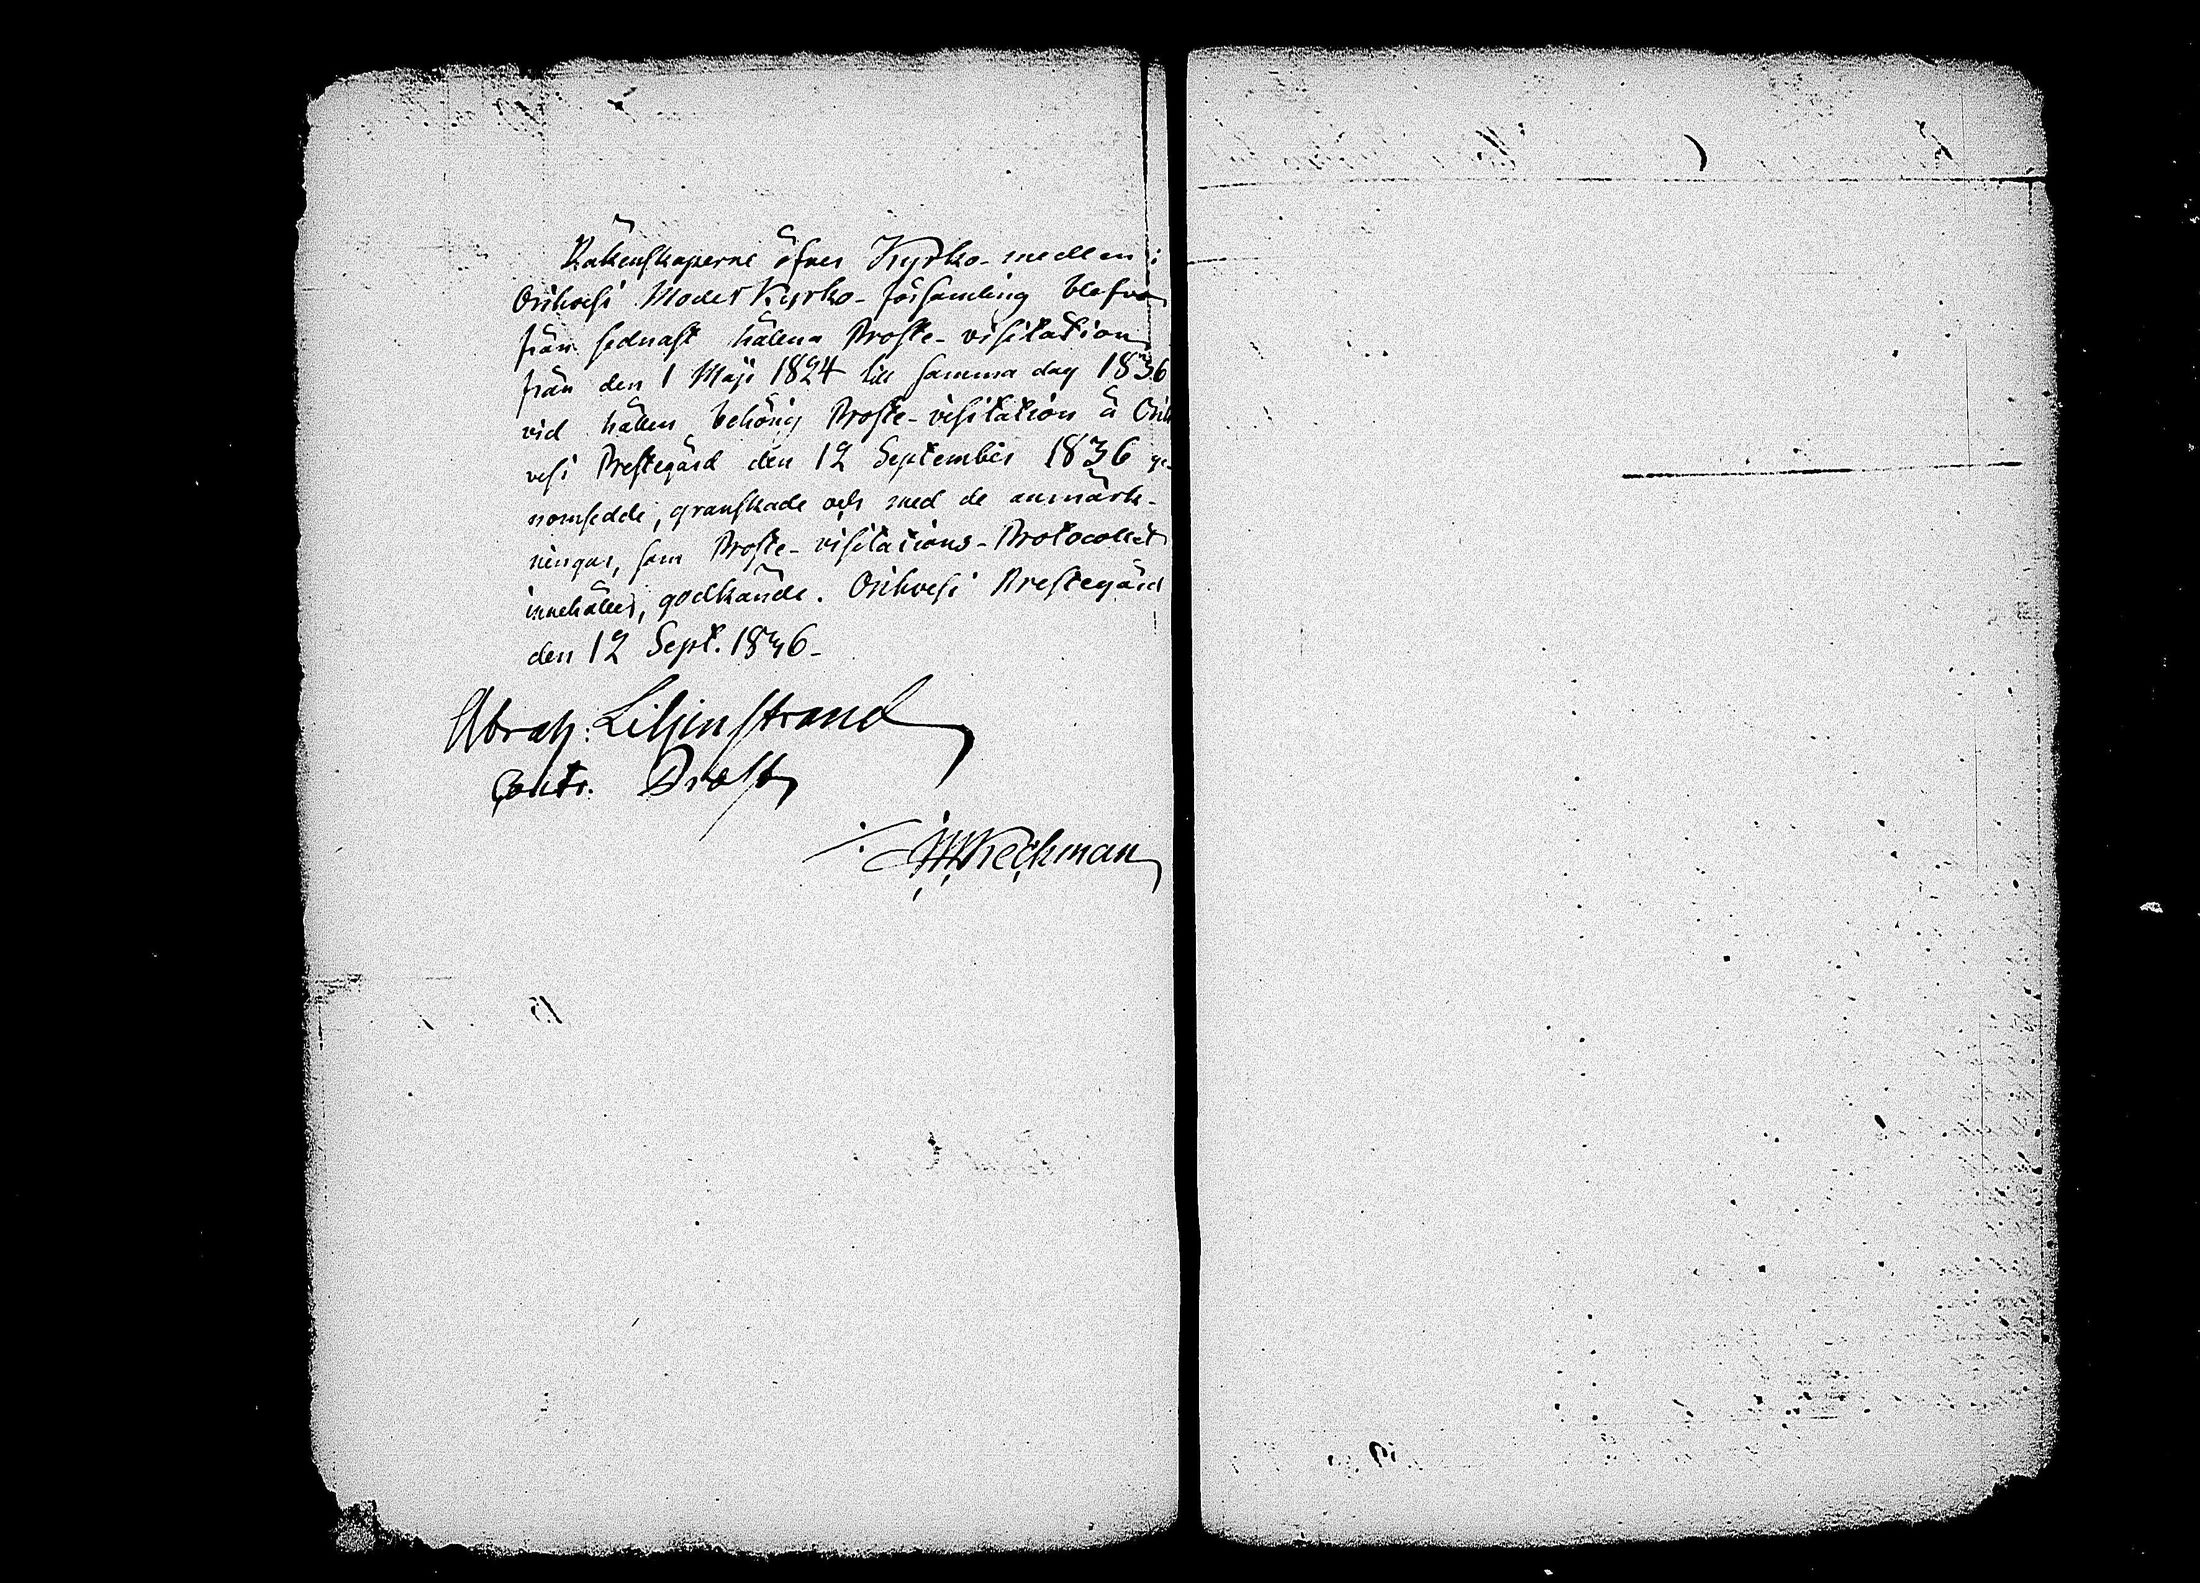 Räkenskaperne öfver Kyrko-medlen i
Orihvesi Moder Kyrko-församling blefvo
från sednast hållna Proste-visitation
från den 1 Maji 1824 till samma dag 1836
vid hållen behörig Proste-visitation å Orih
vesi Prestegård den 12 September 1836 ge-
nomsedde, granskade och med de anmärk-
ningar, som Proste-visitations-Protocollet
innehåller, godkände. Orihvesi Prestegård
den 12 Sept. 1836-
Abrah: Liljenstrand
Contr. Prost
Keckman